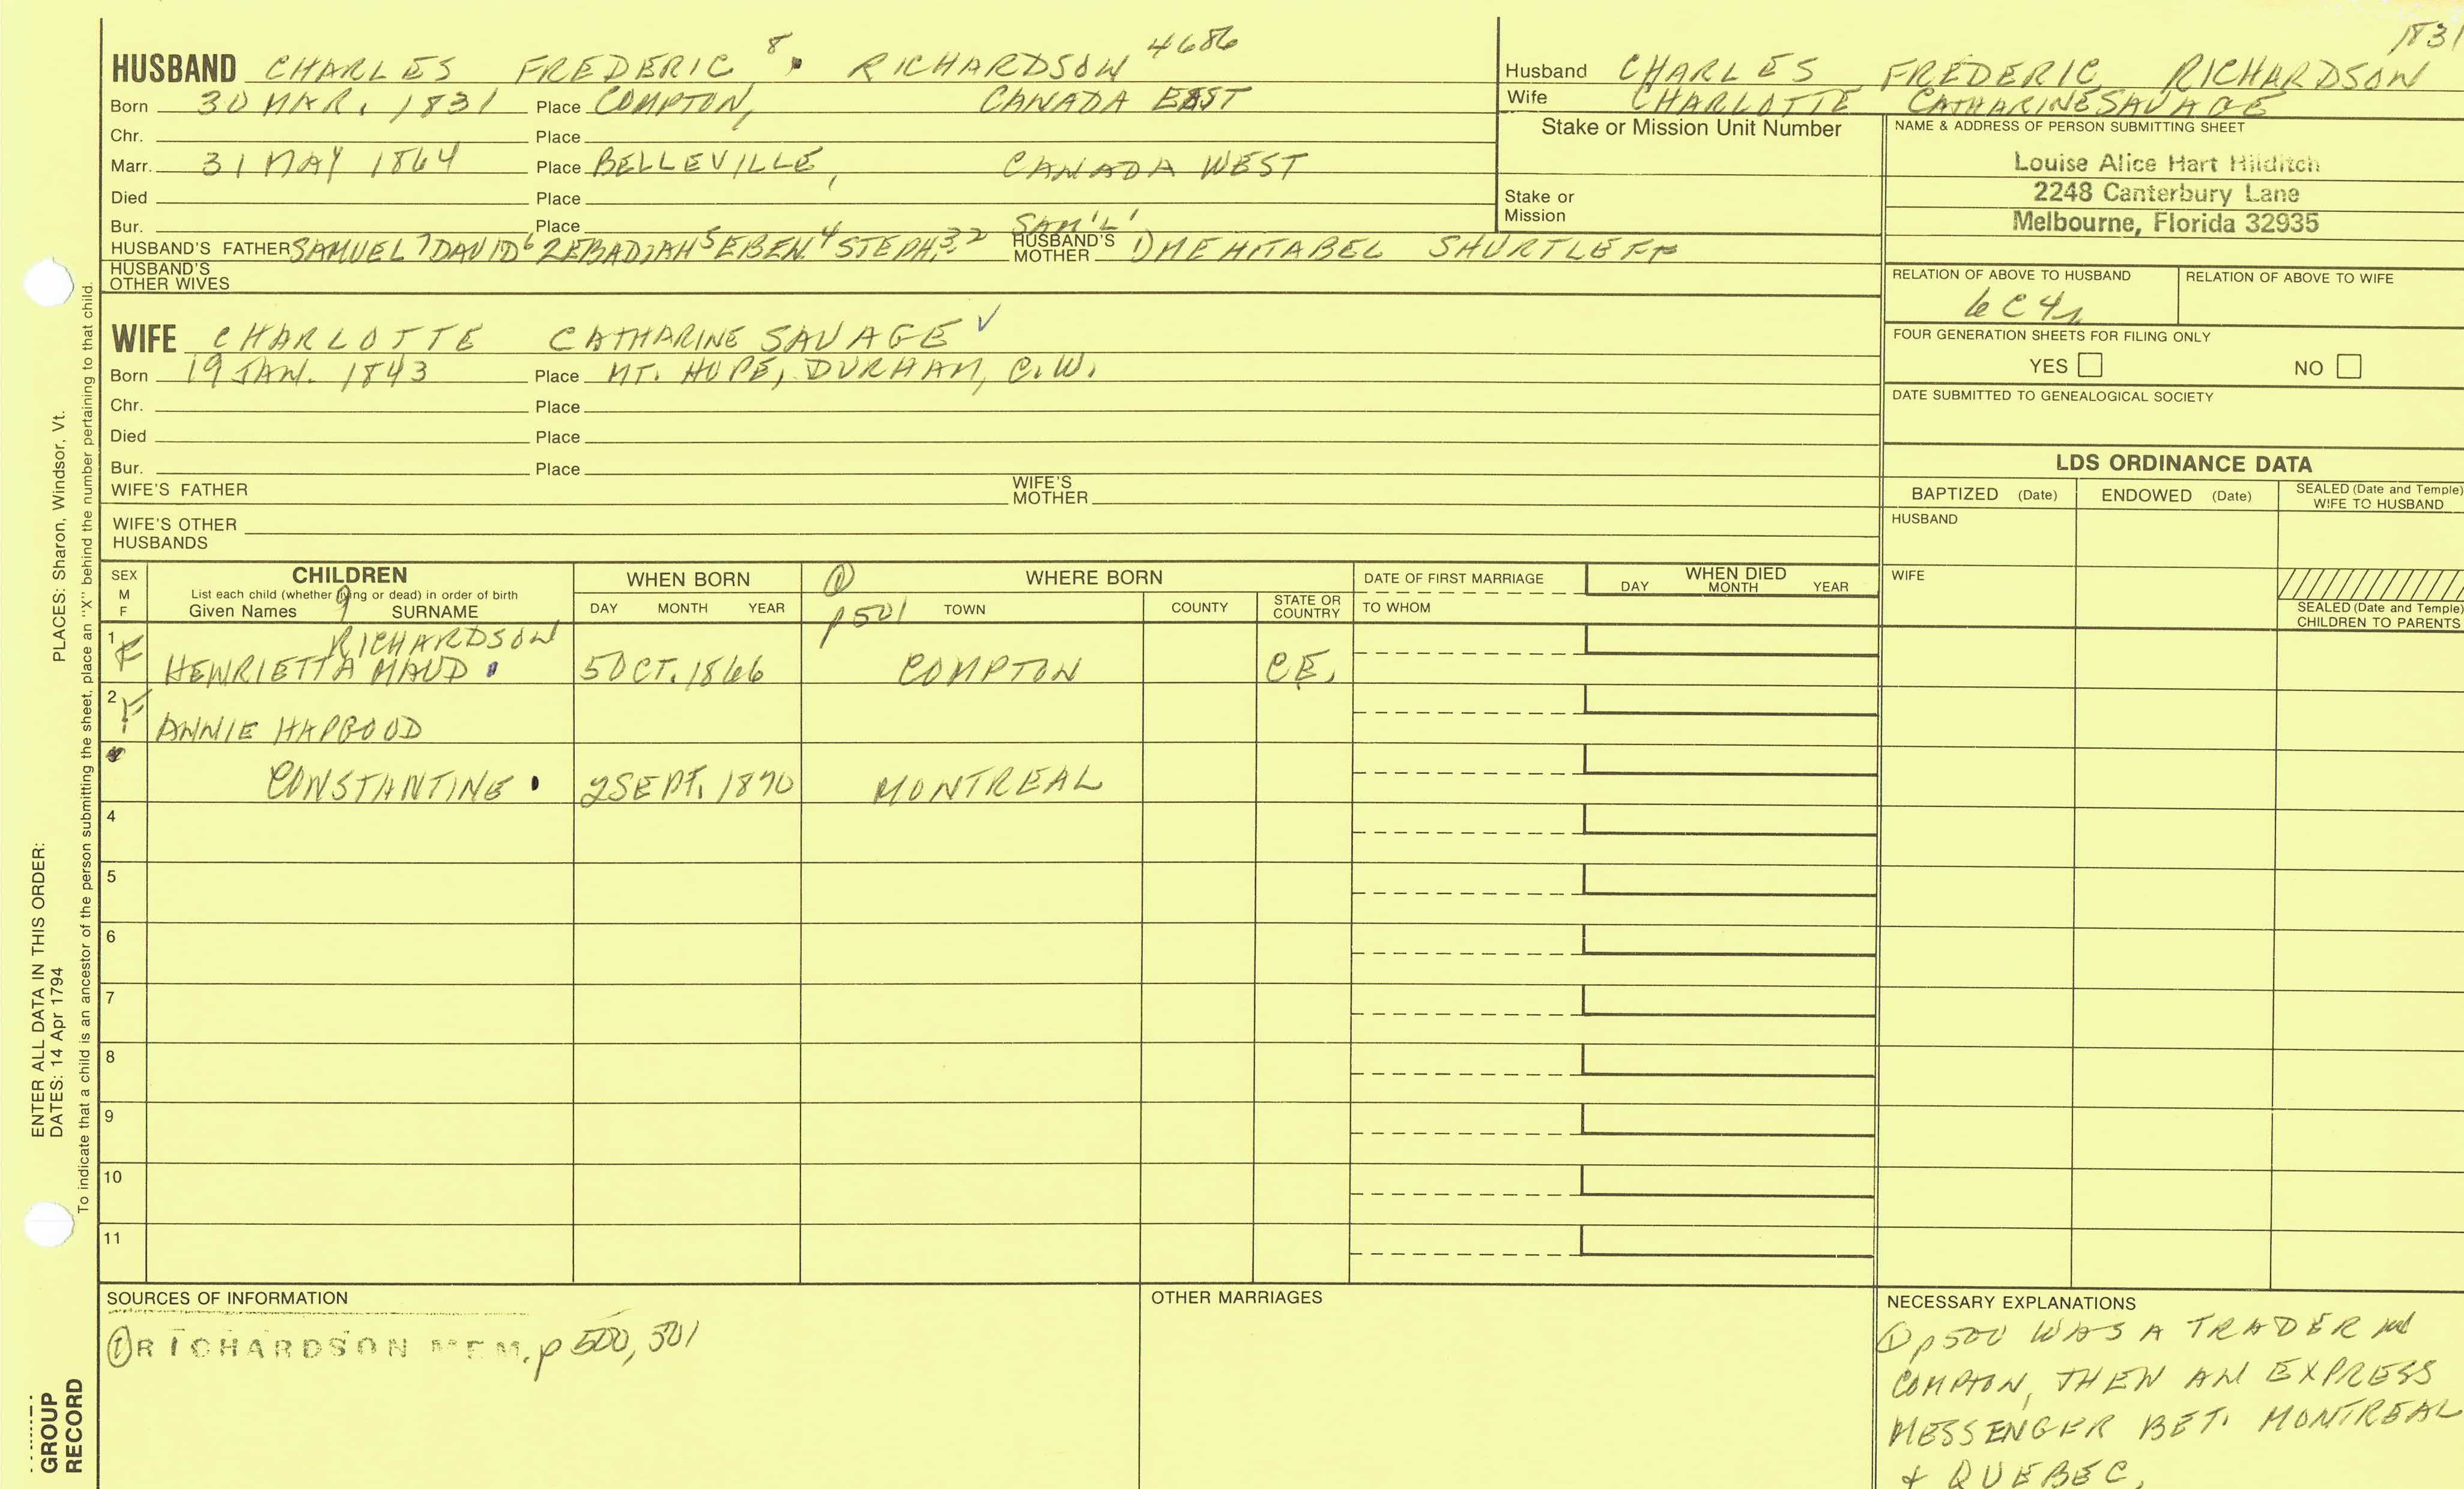 1831
HUSBAND CHARLES FREDERIC 8 RICHARDSON 4686
Born 30 MAR. 1831 Place COMPTON, CANADA EAST
Chr. Place
Marr. 31 MAY 1864 Place BELLEVILLE, CANADA WEST
Died Place
Bur. Place
HUSBAND'S FATHER SAMUEL 7 DAVID 6 ZEBADIAH 5 EBEN. 4 STEPH. 3, 2 SAM'L' HUSBAND'S MOTHER 1) MEHITABEL SHURTLEFF
HUSBAND'S OTHER WIVES
WIFE CHARLOTTE CATHARINE SAVAGE
Born 19 JAN. 1843 Place MT. HOPE, DURHAM, C.W.
Chr. Place
Died Place
Bur. Place
WIFE'S FATHER WIFE'S MOTHER
WIFE'S OTHER HUSBANDS
Husband CHARLES FREDERIC RICHARDSON
Wife CHARLOTTE CATHARINE SAVAGE
Stake or Mission Unit Number
Stake or Mission
NAME & ADDRESS OF PERSON SUBMITTING SHEET
Louise Alice Hart Hilditch
2248 Canterbury Lane
Melbourne, Florida 32935
RELATION OF ABOVE TO HUSBAND RELATION OF ABOVE TO WIFE
6C4r
FOUR GENERATION SHEETS FOR FILING ONLY
YES NO
DATE SUBMITTED TO GENEALOGICAL SOCIETY
LDS ORDINANCE DATA
BAPTIZED (Date) ENDOWED (Date) SEALED (Date and Temple) WIFE TO HUSBAND
HUSBAND
WIFE
SEALED (Date and Temple) CHILDREN TO PARENTS
SEX M F
CHILDREN
List each child (whether living or dead) in order of birth
Given Names 9 SURNAME
WHEN BORN
DAY MONTH YEAR
① p501
WHERE BORN
TOWN COUNTY STATE OR COUNTRY
DATE OF FIRST MARRIAGE
TO WHOM
WHEN DIED
DAY MONTH YEAR
RICHARDSON
1 F HENRIETTA MAUD 5 OCT. 1866 COMPTON C.E.
2 F ANNIE HAPGOOD
CONSTANTINE 2 SEPT. 1870 MONTREAL
4
5
6
7
8
9
10
11
SOURCES OF INFORMATION
① RICHARDSON MEM. p 500, 501
OTHER MARRIAGES
NECESSARY EXPLANATIONS
① p500 WAS A TRADER in
COMPTON, THEN AN EXPRESS
MESSENGER BET. MONTREAL
+ QUEBEC.
PLACES: Sharon, Windsor, Vt.
ENTER ALL DATA IN THIS ORDER:
DATES: 14 Apr 1794
To indicate that a child is an ancestor of the person submitting the sheet, place an "X" behind the number pertaining to that child.
GROUP
RECORD